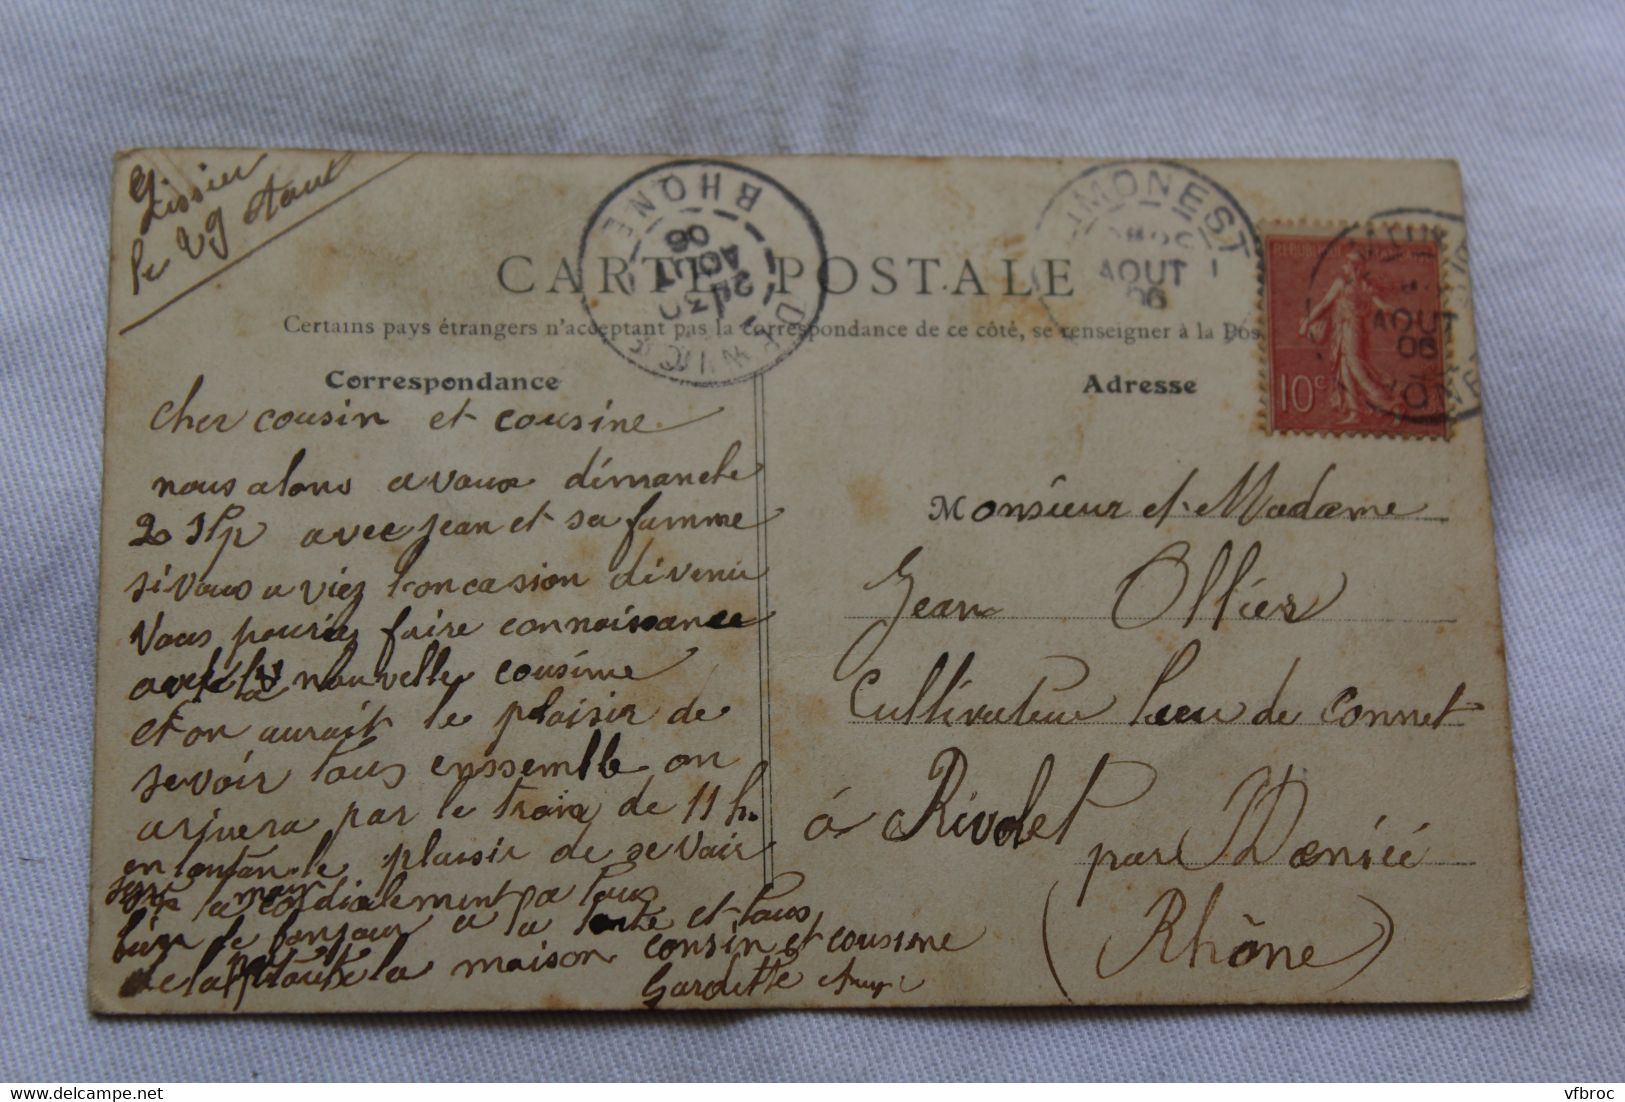 Lissieu
le 29 Aout
CARTE POSTALE
Certains pays étrangers n'acceptant pas la correspondance de ce côté, se renseigner à la Pos
Correspondance
cher cousin et cousine
nous alons a vaux dimanche
2 Sep avec jean et sa famme
si vous aviez loncasion di venir
vous pouriez faire connaissance
avec la nouvelle cousine
et on aurait le plaisir de
se voir tous enssemble on
arivera par le train de 11 h.
en tantan le plaisir de se voir
la main cordialement a tous
bien le bonjour a la tante et tous
de la maison cousin et coussine
Gardette
Adresse
Monsieur et Madame
Jean Ollier
Cultivateur lieu de connet
à Rivolet
par Denicé
(Rhône)
RHONE
2E 30
AOUT
06
LIMONEST
AOUT
06
10c
AOUT
06
vfbroc